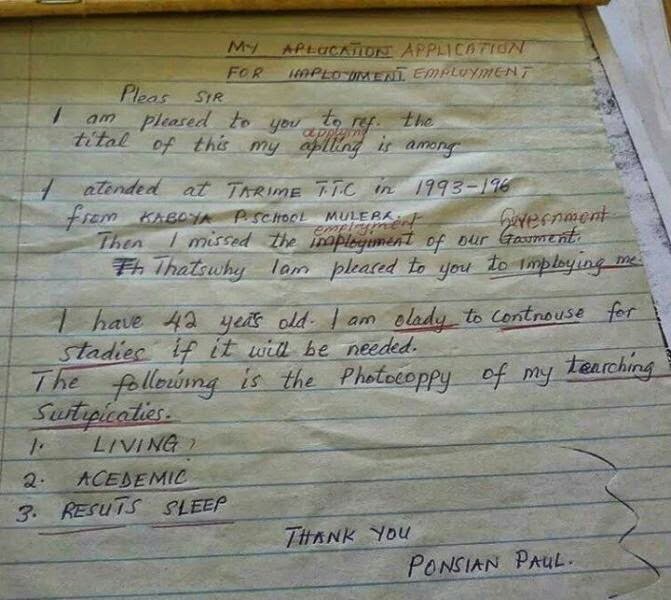 MY APLUCATION APPLICATION
FOR IMPLOYMENT EMPLOYMENT
Pleas SIR
I am pleased to you to ref. the
applying
tital of this my aplling is among
I atended at TARIME T.T.C in 1993-196
from KABOYA P.SCHOOL MULEBA.
employment Government
Then I missed the imployiment of our Gavment.
Th Thatswhy Iam pleased to you to imploying me.
I have 42 years old. I am olady to controuse for
stadies if it will be needed.
The following is the Photocoppy of my tearching
Surtipicaties.
1. LIVING,
2. ACEDEMIC
3. RESUTS SLEEP
THANK YOU
PONSIAN PAUL.